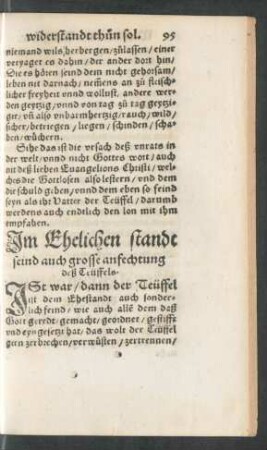 widerstandt thün sol. 95
niemand wils herbergen/zůlassen/einer
veryager es dahin/der ander dort hin/
Sie es hören seind dem nicht gehorsam/
leben nit darnach/nemens an zů fleisch-
licher freyheit vnnd wollust, andere wer-
den geytzig/vnnd von tag zů tag geytzi-
ger/vñ also vnbarmhertzig/rauch/wild/
sicher/betriegen/liegen/schinden/scha-
den/wůchern.
Sihe das ist die vrsach deß vnrats in
der welt/vnnd nicht Gottes wort/auch
nit deß lieben Euangelions Christi/wel-
ches die Gottlosen also lestern/vnd dem
die schuld geben/vnnd dem eben so feind
seyn als ihr Vatter der Teüffel/darumb
werdens auch endtlich den lon mit ihm
empfahen.
Im Ehelichen standt
seind auch grosse anfechtung
deß Teüffels.
ISt war/dann der Teüffel
ist dem Ehestandt auch sonder-
lich feind/wie auch allē dem daß
Gott geredt/gemacht/geordnet/gestifft
vnd eyngesetzt hat/das wolt der Teüffel
gern zerbrechen/verwüsten/zertrennen/